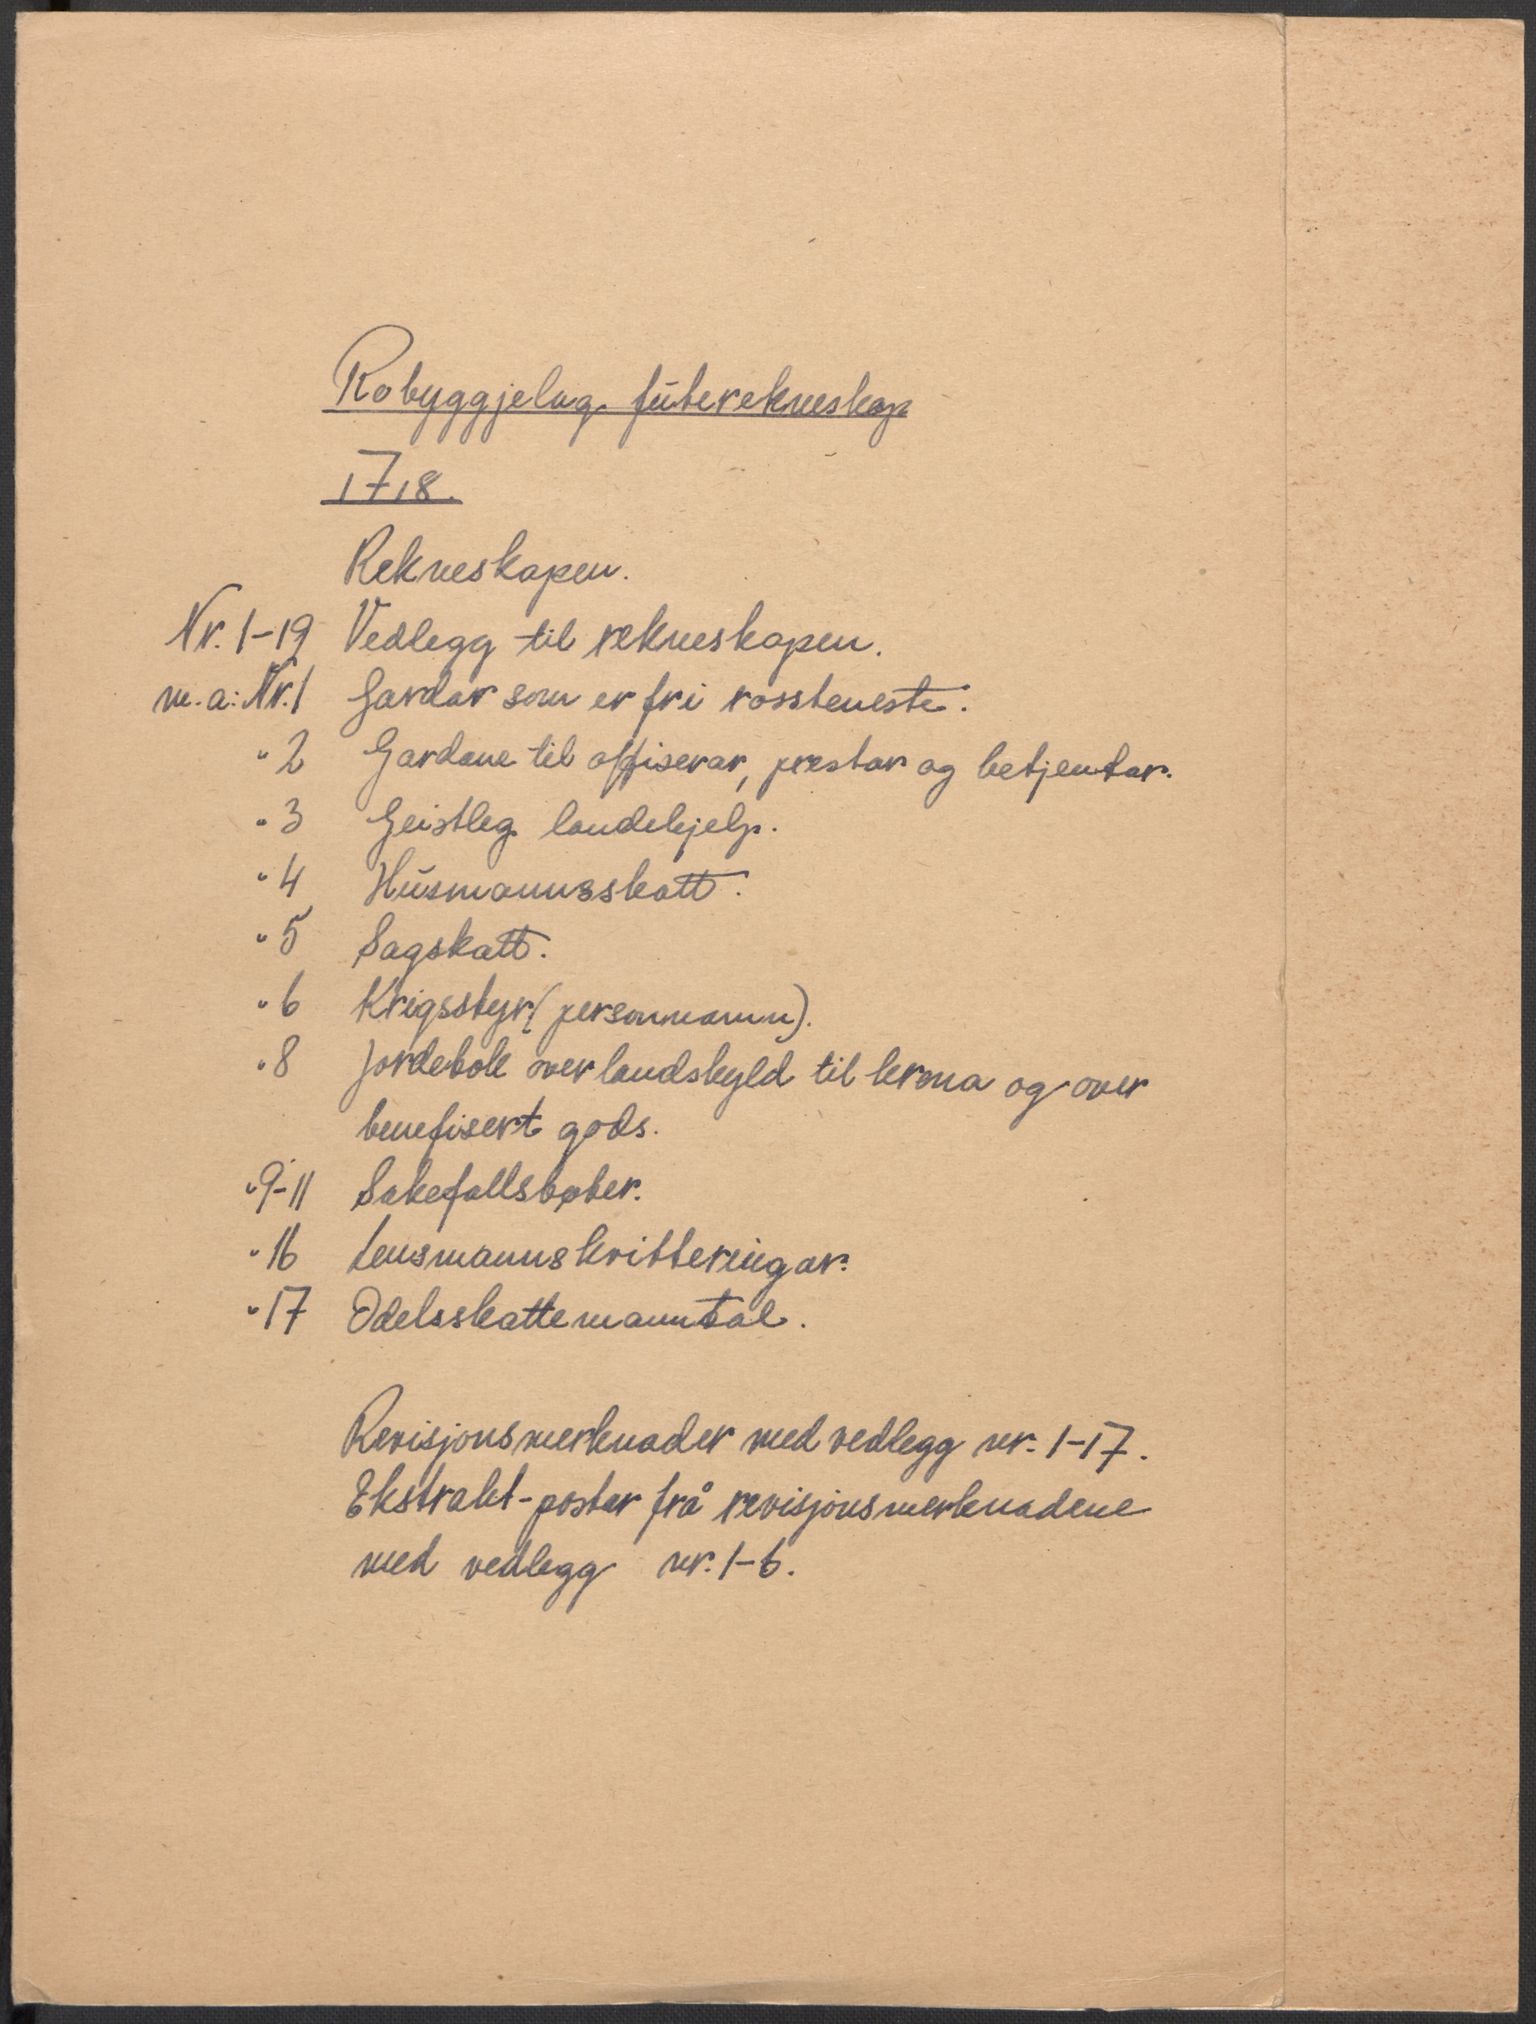 Robyggjelag futerekneskap
1718.
Rekneskapen.
Nr. 1-19 Vedlegg til rekneskapen.
m.a: Nr. 1 Gardar som er fri rossteneste.
" 2 Gardane til offiserar, prestar og betjentar.
" 3 Geistleg landehjelp.
" 4 Husmannsskatt.
" 5 Sagskatt.
" 6 Krigsstyr (personnamn).
" 8 Jordebok over landskyld til krona og over
benefisert gods.
" 9-11 Sakefallsbøter.
" 16 Lensmannskvitteringar.
" 17 Odelsskattemanntal.
Revisjonsmerknader med vedlegg nr. 1-17.
Ekstrakt-postar frå revisjonsmerknadene
med vedlegg nr. 1-6.